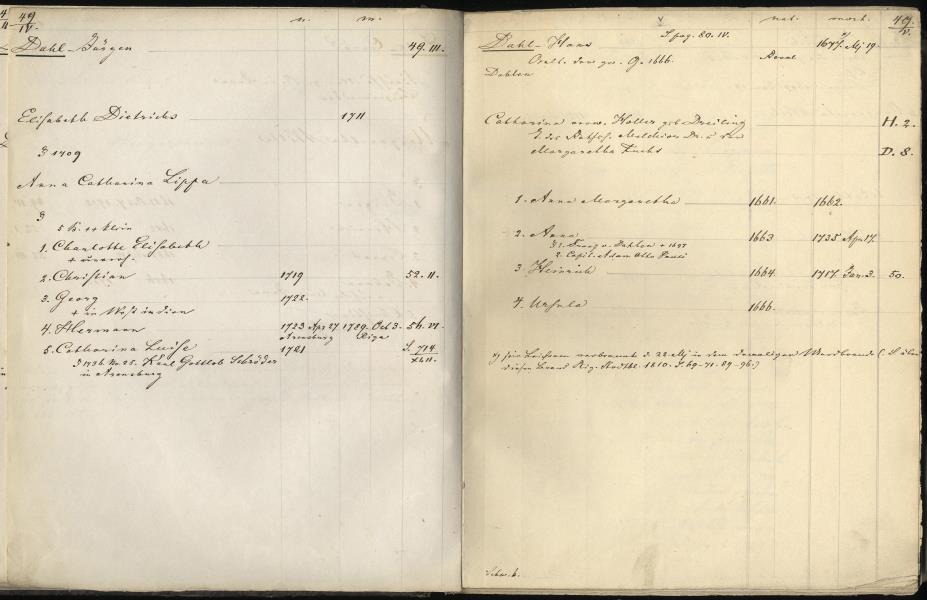 49
IV.
n. m.
Dahl - Jürgen 49. III.
Elisabeth Dietrichs 1711
1709
Anna Catharina Lippa
5 K. ++ klein
1. Charlotte Elisabeth
2. Christian 1719 52. II.
3. Georg 1722.
+ in West indien
4. Hermann 1723 Apr 27 1789. Oct 3. 56. VI.
Arensburg Riga
5. Catharina Luise 1721 S. 714
XLII.
1736 No 25. Karl Gottlob Schröder
in Arensburg
nat. mort. 49.
V.
S. pag. 80. IV.
Dahl - Hans 1677. Mj 19.
1666. Reval
Dahlen
Catharina verw. Holler geb Dreiling H. 2.
d. des Rathsh. Melchior Dr. u der
Margaretha Fuchs D. 8.
1. Anna Margaretha 1661. 1662.
2. Anna 1663 1735 Apr 17.
1. v. Dahlen + 1697
2. Capit. Adam Otto
3 Heinrich 1664. 1717. Jan. 3. 50.
4. Ursula 1666.
verbrannt d. 22. Mj in dem damaligen Mordbrande
Rig. Stadtbl. 1810. S. 69-71. 89-96.)